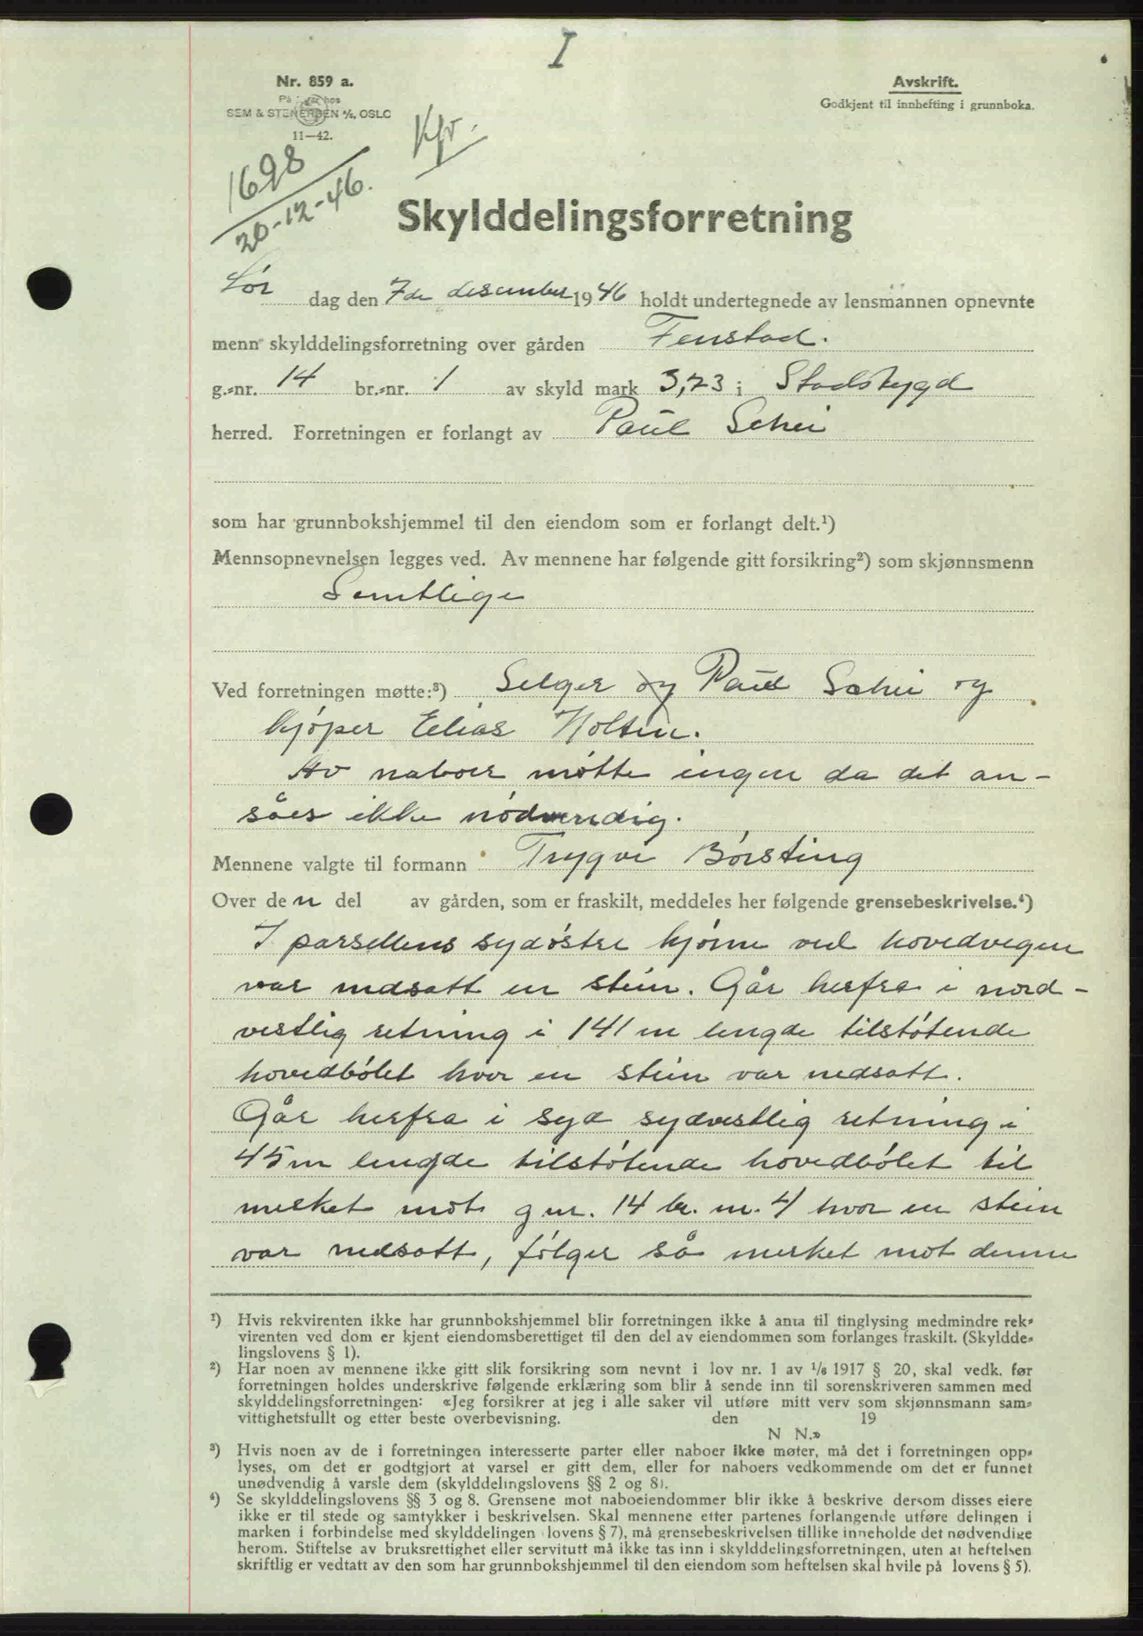 I
Nr. 859 a.
På lager hos
SEM & STENERSEN A/S, OSLO
11—42.
Avskrift.
Godkjent til innhefting i grunnboka.
Kfr.
1698
20-12-46.
Skylddelingsforretning
Lør dag den 7de desember 1946 holdt undertegnede av lensmannen opnevnte
menn skylddelingsforretning over gården Fenstad.
g.-nr. 14 br.-nr. 1 av skyld mark 3,73 i Stadsbygd
herred. Forretningen er forlangt av Paul Schei
som har grunnbokshjemmel til den eiendom som er forlangt delt.¹)
Mennsopnevnelsen legges ved. Av mennene har følgende gitt forsikring²) som skjønnsmenn
Samtlige
Ved forretningen møtte:³) Selger og Paul Schei og
kjøper Elias Holten.
Av naboer møtte ingen da det an-
såes ikke nødvendig.
Mennene valgte til formann Trygve Børsting
Over den del av gården, som er fraskilt, meddeles her følgende grensebeskrivelse.⁴)
I parsellens sydøstre hjørne ved hovedvegen
var nedsatt en stein. Går herfra i nord-
vestlig retning i 141 m lengde tilstøtende
hovedbølet hvor en stein var nedsatt.
Går herfra i syd sydvestlig retning i
45 m lengde tilstøtende hovedbølet til
merket mot g nr. 14 br. nr. 4 hvor en stein
var nedsatt, følger så merket mot denne
¹) Hvis rekvirenten ikke har grunnbokshjemmel blir forretningen ikke å anta til tinglysing medmindre rek-
virenten ved dom er kjent eiendomsberettiget til den del av eiendommen som forlanges fraskilt. (Skyldde-
lingslovens § 1).
²) Har noen av mennene ikke gitt slik forsikring som nevnt i lov nr. 1 av 1/6 1917 § 20, skal vedk. før
forretningen holdes underskrive følgende erklæring som blir å sende inn til sorenskriveren sammen med
skylddelingsforretningen: «Jeg forsikrer at jeg i alle saker vil utføre mitt verv som skjønnsmann sam-
vittighetsfullt og etter beste overbevisning. den 19
N N.»
³) Hvis noen av de i forretningen interesserte parter eller naboer ikke møter, må det i forretningen opp-
lyses, om det er godtgjort at varsel er gitt dem, eller for naboers vedkommende om det er funnet
unødvendig å varsle dem (skylddelingslovens §§ 2 og 8).
⁴) Se skylddelingslovens §§ 3 og 8. Grensene mot naboeiendommer blir ikke å beskrive dersom disses eiere
ikke er til stede og samtykker i beskrivelsen. Skal mennene etter partenes forlangende utføre delingen i
marken i forbindelse med skylddelingen lovens § 7), må grensebeskrivelsen tillike inneholde det nødvendige
herom. Stiftelse av bruksrettighet eller servitutt må ikke tas inn i skylddelingsforretningen, uten at heftelsen
skriftlig er vedtatt av den som har grunnbokshjemmel til den eiendom som heftelsen skal hvile på lovens § 5).